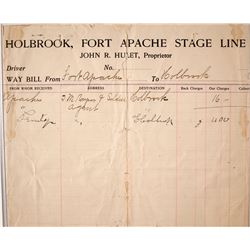 HOLBROOK, FORT APACHE STAGE LINE
JOHN R. HULET, Proprietor
Driver No.
WAY BILL From Fort Apache To Holbrook
FROM WHOM RECEIVED ADDRESS DESTINATION Back Charges Our Charges Collect
Apache Holbrook 16 —
Agent
Holbrook